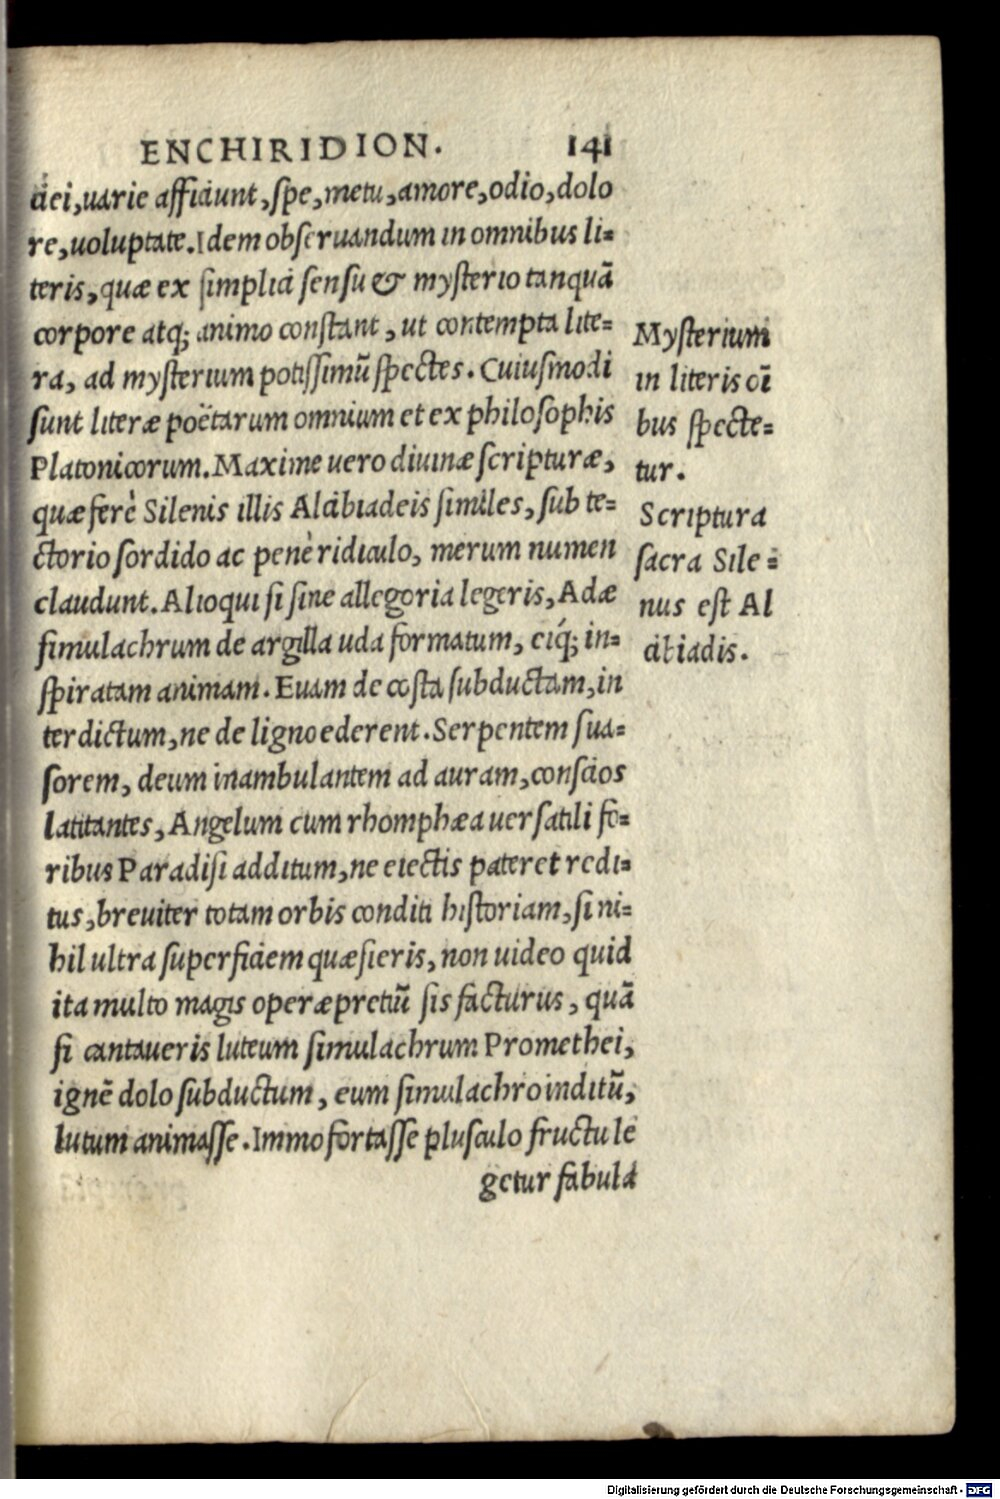 ENCHIRIDION. 141
ciei, uarie afficiunt, spe, metu, amore, odio, dolo
re, uoluptate. Idem obseruandum in omnibus li=
teris, quæ ex simplici sensu & mysterio tanquā
corpore atq; animo constant, ut contempta lite=
ra, ad mysterium potissimū spectes. Cuiusmodi
sunt literæ poëtarum omnium et ex philosophis
Platonicorum. Maxime uero diuinæ scripturæ,
quæ ferè Silenis illis Alcibiadeis similes, sub te=
ctorio sordido ac penè ridiculo, merum numen
claudunt. Alioqui si sine allegoria legeris, Adæ
simulachrum de argilla uda formatum, eiq́; in=
spiratam animam. Euam de costa subductam, in
terdictum, ne de ligno ederent. Serpentem sua=
sorem, deum inambulantem ad auram, conscios
latitantes, Angelum cum rhomphæa uersatili fo=
ribus Paradisi additum, ne eiectis pateret redi=
tus, breuiter totam orbis conditi historiam, si ni=
hil ultra superficiem quæsieris, non uideo quid
ita multo magis operæpretiū sis facturus, quā
si cantaueris luteum simulachrum Promethei,
ignē dolo subductum, eum simulachro inditū,
lutum animasse. Immo fortasse plusculo fructu le
getur fabula
Mysterium
in literis oī
bus specte=
tur.
Scriptura
sacra Sile=
nus est Al
cibiadis.
Digitalisierung gefördert durch die Deutsche Forschungsgemeinschaft - DFG